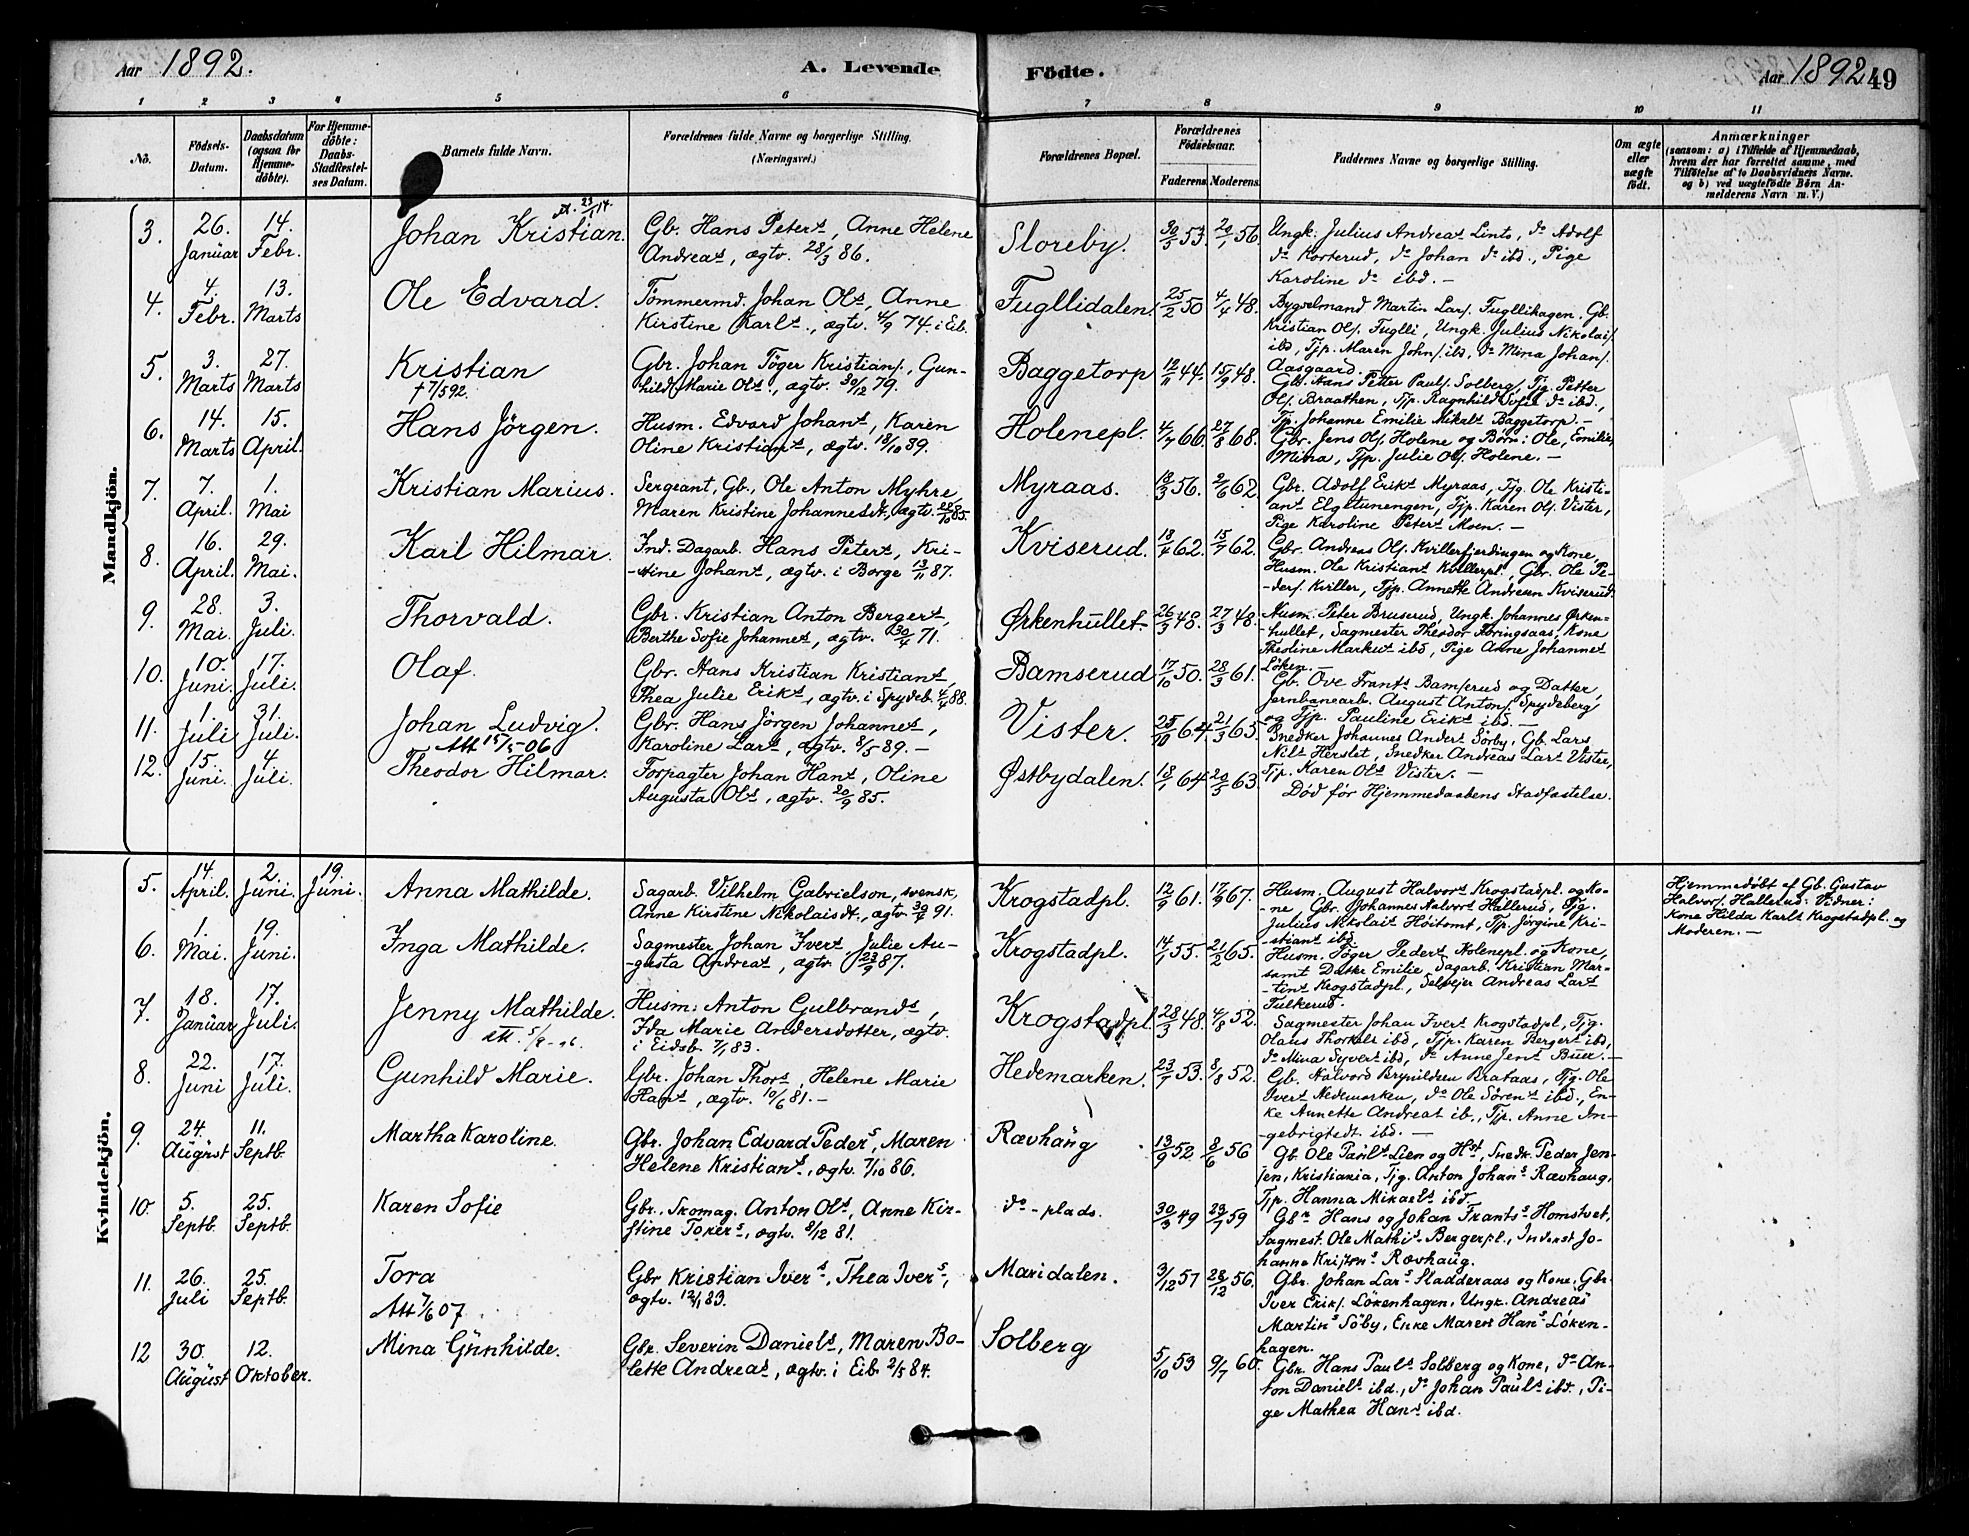 Aar 1892. A. Levende Födte. Aar 1892 49
1 2 3 4 5 6 7 8 9 10 11
No. Födsels-Datum. Daabsdatum (ogsaa for Hjemme-döbte). For Hjemme-döbte: Daabs-Stadfæstel-ses Datum. Barnets fulde Navn. Forældrenes fulde Navne og borgerlige Stilling. (Næringsvei.) Forældrenes Bopæl. Forældrenes Födselsaar. Faderens Moderens Faddernes Navne og borgerlige Stilling. Om ægte eller uægte födt. Anmærkninger
(saasom: a) i Tilfælde af Hjemmedaab,
hvem der har forrettet samme, med
Tilföielse af to Daabsvidners Navne.
og b) ved uægtefödte Börn An-
melderens Navn m. V.)
Mandkjön.
3. 26. Januar 14. Febr. Johan Kristian. 23/1 14.
Gb. Hans Peters, Anne Helene
Andreas, ægtv. 28/3 86.
Sloreby. 30/5 53. 20/1 56.
Ungk. Julius Andreas Linto, do Adolf
do Korterud, do Johan do ibd., Pige
Karoline do ibd. —
4. 4. Febr. 13. Marts Ole Edvard.
Tömmermd. Johan Ols, Anne
Kirstine Karls., ægtv. 4/9 74. i Eib.
Fugllidalen. 25/2 50 4/4 48.
Bygselmand Martin Lars. Fugllihagen. Gb.
Kristian Ols. Fuglli, Ungk. Julius Nikolais.
ibd, Tjp. Maren Johns. ibd, do Mina Johans.
Aasgaard.
5. 3. Marts 27. Marts Kristian
† 7/5 92.
Gbr. Johan Töger Kristians., Gun-
hild Marie Ols., ægtv. 30/12 79.
Baggetorp 12/11 44. 15/9 48.
Gb. Hans Petter Pauls. Solberg, Tjg. Petter
Ols. Braathen, Tjp. Ragnhild Sofie do ibd.,
Tjp. Johanne Emilie Mikals Baggetorp. —
6. 14. Marts 15. April. Hans Jörgen.
Husm. Edvard Johans, Karen
Oline Kristians, ægtv. 18/10 89.
Holenepl. 4/7 66. 27/8 68.
Gbr. Jens Ols. Holene og Börn: Ole, Emilie,
Mina, Tjp. Julie Ols. Holene. —
7. 7. April. 1. Mai Kristian Marius.
Sergeant, Gb., Ole Anton Myhre,
Maren Kristine Johannesdt., ægtv. 28/10 85.
Myraas. 12/3 56. 2/6 62.
Gbr. Adolf Eriks Myraas, Tjg. Ole Kristi-
ans Elgetunengen, Tjp. Karen Ols. Vister,
Pige Karoline Peters Moen. —
8. 16. April. 29. Mai. Karl Hilmar.
Ind. Dagarb. Hans Peters, Kri-
-stine Johans, ægtv. i Borge 13/11 87.
Kviserud. 18/4 62. 15/7 62.
Gbr. Andreas Ols. Kvillerfjerdingen og Kone,
Husm. Ole Kristians Kvillerpl., Gbr. Ole Pe-
-ders. Kviller, Tjp. Annette Andresen Kviserud.
9. 28. Mai. 3. Juli. Thorvald.
Gbr. Kristian Anton Bergers,
Berthe Sofie Johannes, ægtv. 30/4 71.
Ørkenhullet. 26/3 48. 27/3 48.
Husm. Peter Bruserud, Ungk. Johannes Ørken-
-hullet, Sagmester Theodor Haringsaas, Kone
Theoline Markus ibd, Pige Anne Johannes
Löken. —
10. 10. Juni. 17. Juli. Olaf.
Gbr. Hans Kristian Kristians,
Thea Julie Eriks, ægtv. i Spydeb. 4/4 88.
Bamserud 17/10 50. 28/3 61.
Gb. Ove Frants Bamserud og Datter,
Jernbanearb. August Antons. Spydeberg
og Tjp. Pauline Eriks ibd. —
11. 1. Juli 31. Juli. Johan Ludvig.
Att 15/5-06
Gbr. Hans Jörgen Johannes,
Karoline Lars, ægtv. 8/5 89. —
Vister. 25/10 64. 21/3 65.
Snedker Johannes Anders Sörby, Gb. Lars
Nils Herslet, Snedker Andreas Lars Vister,
Tjp. Karen Ols Vister. —
12. 15. Juni. 4. Juli. Theodor Hilmar.
Forpagter Johan Hans, Oline
Augusta Ols, ægtv. 20/9 85.
Østbydalen. 18/1 64 20/5 63.
Död för Hjemmedaabens Stadfæstelse.
Kvindekjön.
5. 14. April. 2. Juni. 19. Juni. Anna Mathilde.
Sagarb. Vilhelm Gabrielson, svensk,
Anne Kirstine Nikolaisdt., ægtv. 30/8 91.
Krogstadpl. 12/9 61. 17/9 67.
Husm. August Halvors Krogstadpl. og Ko-
-ne, Gbr. Johannes Halvors Hallerud, Tjg.
Julius Nikolais Höitomt, Tjp. Jörgine Kri-
-stians ibd.
Hjemmedöbt af Gb. Gustav
Halvors. Hallerud. Vidner:
Kone Hilda Karls Krogstadpl. og
Moderen. —
6. 1. Mai. 19. Juni. Inga Mathilde.
Sagmester Johan Ivers, Julie Au-
-gusta Andreas, ægtv. 23/9 87.
Krogstadpl. 14/1 55. 21/2 65.
Husm. Töger Peders Holenepl. og Kone,
samt Datter Emilie, Sagarb. Kristian Mar-
-tins Krogstadpl., Selveier Andreas Lars
Tulkerud.
7. 18. Januar 17. Juli. Jenny Mathilde.
Husm: Anton Gulbrands,
Ida Marie Andersdotter, ægtv.
i Eidsb. 7/1 83.
Krogstadpl. 28/3 48. 4/8 52.
Sagmester Johan Ivers Krogstadpl., Tjg.
Olaus Thorkels ibd, Tjp. Karen Bergers ibd,
do Mina Syvers ibd, do Anne Jens Buer. —
8. 22. Juni 17. Juli. Gunhild Marie.
Gbr. Johan Thors, Helene Marie
Hans, ægtv. 10/6 81. —
Hedemarken. 23/7 53. 8/8 52.
Gb. Halvord Brynildsen Brataas, Tjg. Ole
Ivers Hedemarken, do Ole Sörens ibd., En-
ke Annette Andreas ib., Tjp. Anne In-
-gebrigtsdt. ibd. —
9. 24. August 11. Septb. Martha Karoline.
Gbr. Johan Edvard Peders, Maren
Helene Kristians, ægtv. 7/10 86.
Rævhaug 13/9 52 8/6 56
Gb. Ole Pauls Lien og Hst., Snedk. Peder Jen-
sen, Kristiania, Tjg. Anton Johans Rævhaug,
Tjp. Hanna Mikaels ibd.
10. 5. Septb. 25. Septb. Karen Sofie
Gbr. Skomag. Anton Ols, Anne Kir-
stine Torers, ægtv. 8/12 81.
do -plads. 30/3 49 23/7 59
Gbr Hans og Johan Frants Homstvet,
Sagmest. Ole Mathis Bergerpl., Inderst Jo-
hanne Kristens Rævhaug.
11. 26. Juli 25. Septb. Tora
Att 7/6 07.
Gbr Kristian Ivers, Thea Ivers,
ægtv. 12/1 83.
Maridalen. 3/12 57 28/12 56.
Gbr. Johan Lars Sladderaas og Kone. Gbr.
Iver Eriks. Lökenhagen, Ungk. Andreas
Martins Söby, Enke Maren Hans Löken-
hagen.
12 30. August 12. Oktober. Mina Gunhilde.
Gbr. Severin Daniels, Maren Bo-
lette Andreas, ægtv. i Eib. 2/5 84.
Solberg 5/10 53 9/7 60.
Gbr. Hans Pauls Solberg og Kone, do An-
ton Daniels ibd., do Johan Pauls ibd., Pi-
ge Mathea Hans ibd.